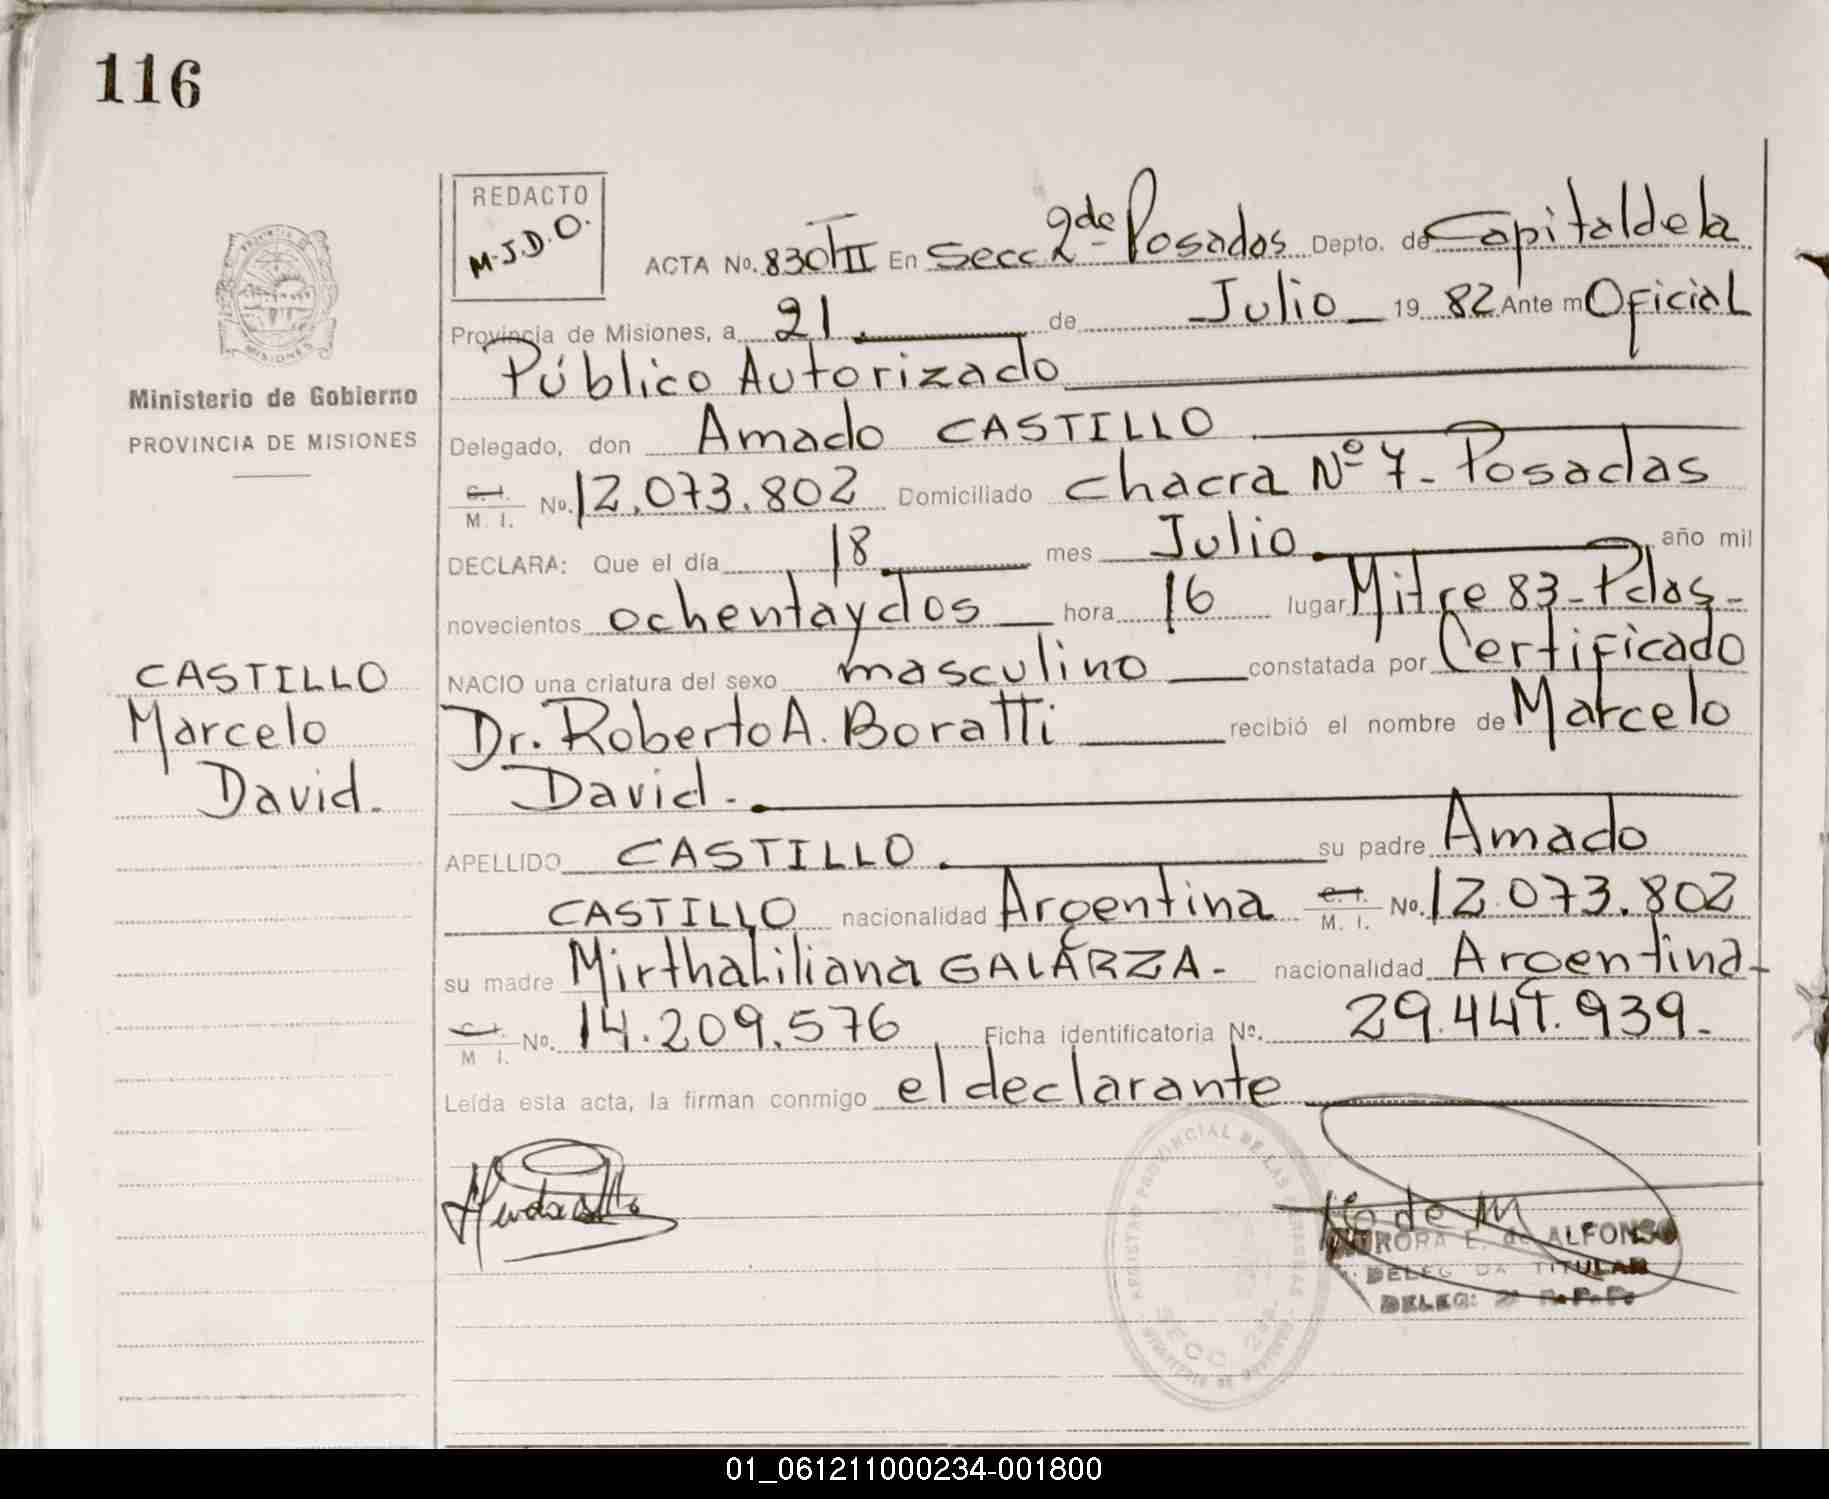 116
REDACTO
M.J.D.O.
ACTA No. 830 TII En Secc 2da Posadas Depto. de Capital de la
Provincia de Misiones, a 21 de Julio 19 82 Ante m Oficial
Público Autorizado
PROVINCIA DE
MISIONES
Ministerio de Gobierno
PROVINCIA DE MISIONES
Delegado, don Amado CASTILLO
C. I.
M. I. No. 12.073.802 Domiciliado Chacra Nº 7 - Posadas
DECLARA: Que el día 18 mes Julio año mil
novecientos ochenta y dos hora 16 lugar Mitre 83 - Pdas -
NACIO una criatura del sexo masculino constatada por Certificado
Dr. Roberto A. Boratti recibió el nombre de Marcelo
David. -
CASTILLO
Marcelo
David. -
APELLIDO CASTILLO. su padre Amado
CASTILLO nacionalidad Argentina C. I.
M. I. No. 12.073.802
su madre Mirtha Liliana GALARZA - nacionalidad Argentina -
C. I.
M I. No. 14.209.576 Ficha identificatoria No. 29.447.939. -
Leída esta acta, la firman conmigo el declarante
REGISTRO PROVINCIAL DE LAS PERSONAS
SECC 2da.
AURORA E. de ALFONSO
DELEGADA TITULAR
DELEG: 2a R.P.P.
01_061211000234-001800